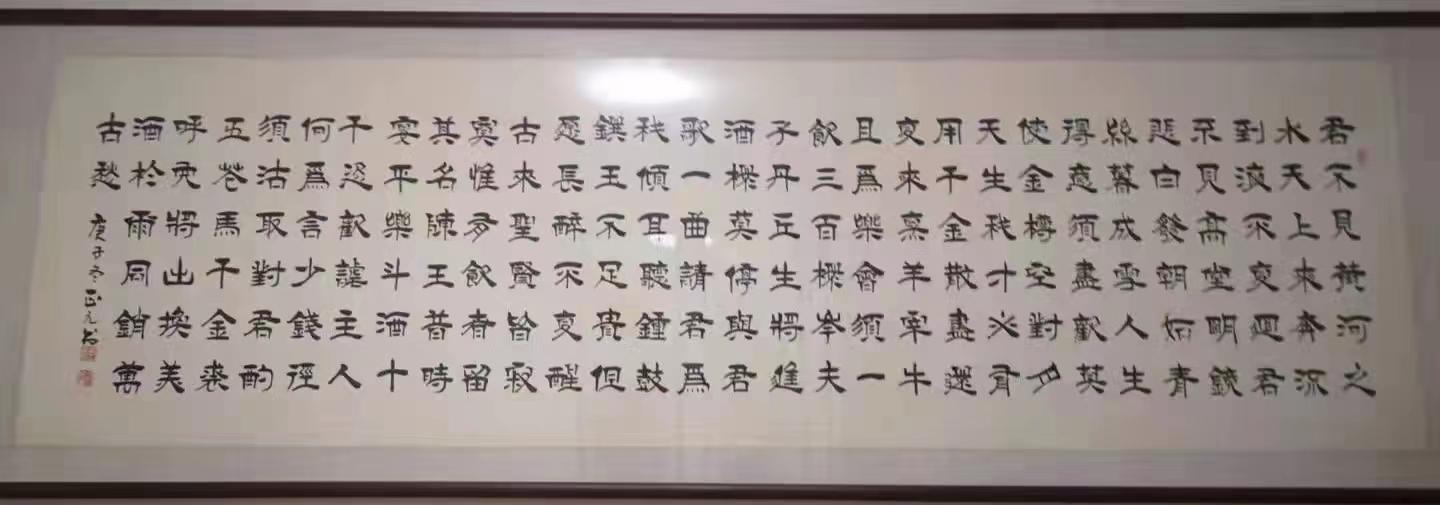 君不見黃河之
水天上來奔流
到海不復迴君
不見高堂明鏡
悲白發朝如青
絲暮成雪人生
得意須盡歡莫
使金樽空對月
天生我才必有
用千金散盡還
復來烹羊宰牛
且爲樂會須一
飲三百杯岑夫
子丹丘生將進
酒杯莫停與君
歌一曲請君爲
我傾耳聽鍾鼓
饌玉不足貴但
願長醉不復醒
古來聖賢皆寂
寞惟有飲者留
其名陳王昔時
宴平樂斗酒十
千恣歡謔主人
何爲言少錢徑
須沽取對君酌
五花馬千金裘
呼兒將出換美
酒於爾同銷萬
古愁
庚子冬正元書